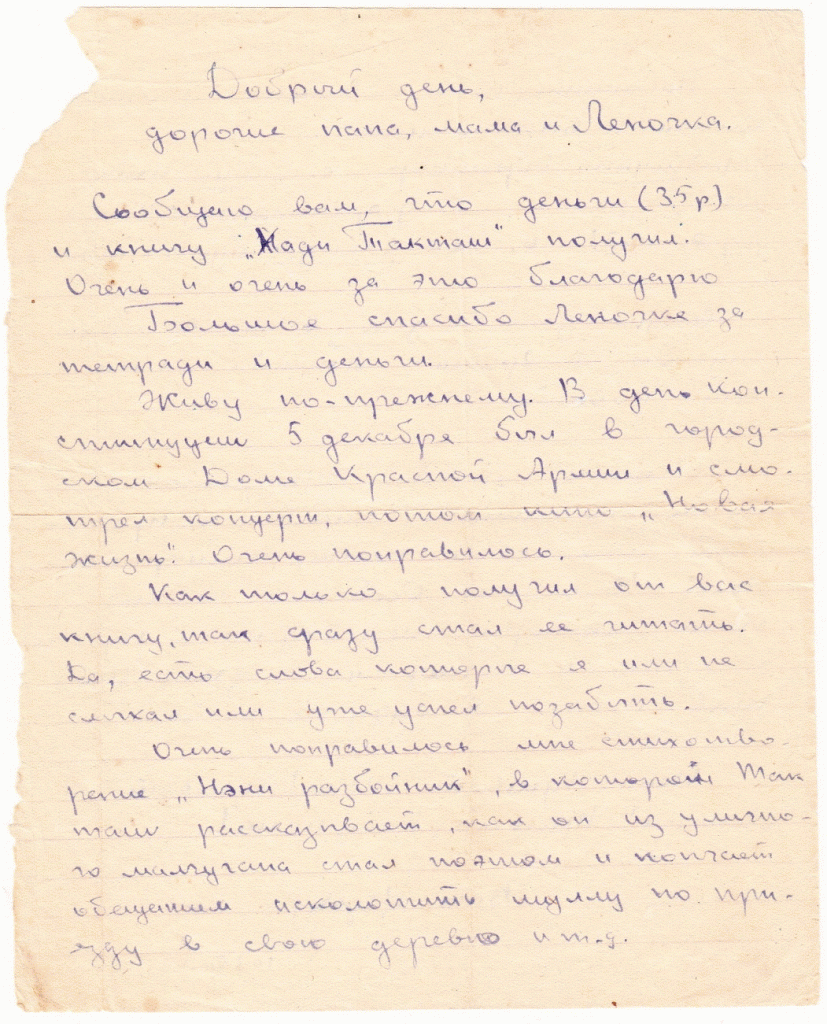 Добрый день,
дорогие папа, мама и Леночка.
Сообщаю вам, что деньги (35 р)
и книгу „Хади Такташ" получил.
Очень и очень за это благодарю
Большое спасибо Леночке за
тетради и деньги.
Живу по-прежнему. В день кон-
ституции 5 декабря был в город-
ском Доме Красной Армии и смо-
трел концерт, потом кино „Новая
жизнь". Очень понравилось.
Как только получил от вас
книгу, так сразу стал ее читать.
Да, есть слова которые я или не
слыхал или уже успел позабыть.
Очень понравилось мне стихотво-
рение „Нэни разбойник", в которой Так
таш рассказывает, как он из улично-
го мальчугана стал поэтом и кончает
обещанием исколотить муллу по при-
езду в свою деревню и т.д.